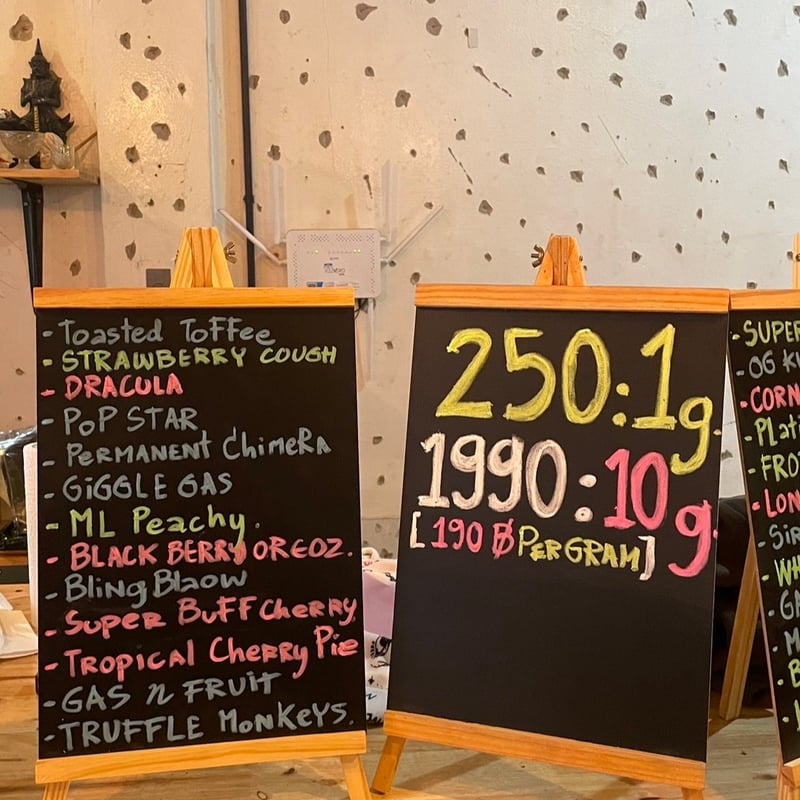 - Toasted Toffee
- STRAWBERRY COUGH
- DRACULA
- PoP STAR
- PERMANENT ChimeRa
- GiGGLE GAS
- ML Peachy.
- BLACK BERRY OREOZ.
- BlingBlaow
- Super BuFF Cherry
- Tropical Cherry Pie
- GAS n FRUiT
- TRUFFLE MonKeYS.
250:1g.
1990:10g.
[190 ฿ PER GRAM]
- SUPER
- OG
- CORN
- FRO